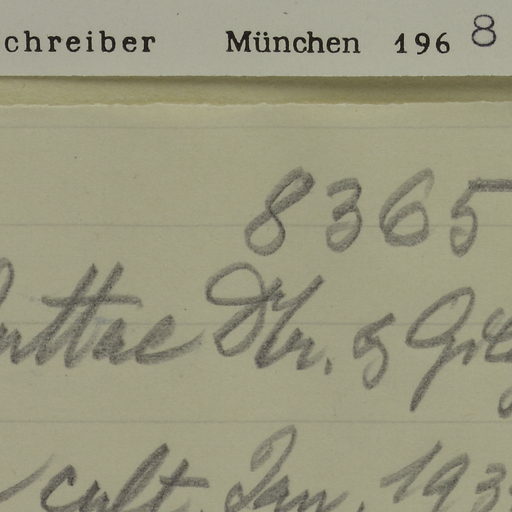 chreiber München 1968
8365
uttae Hr. & Gilg
cult. Jan. 193